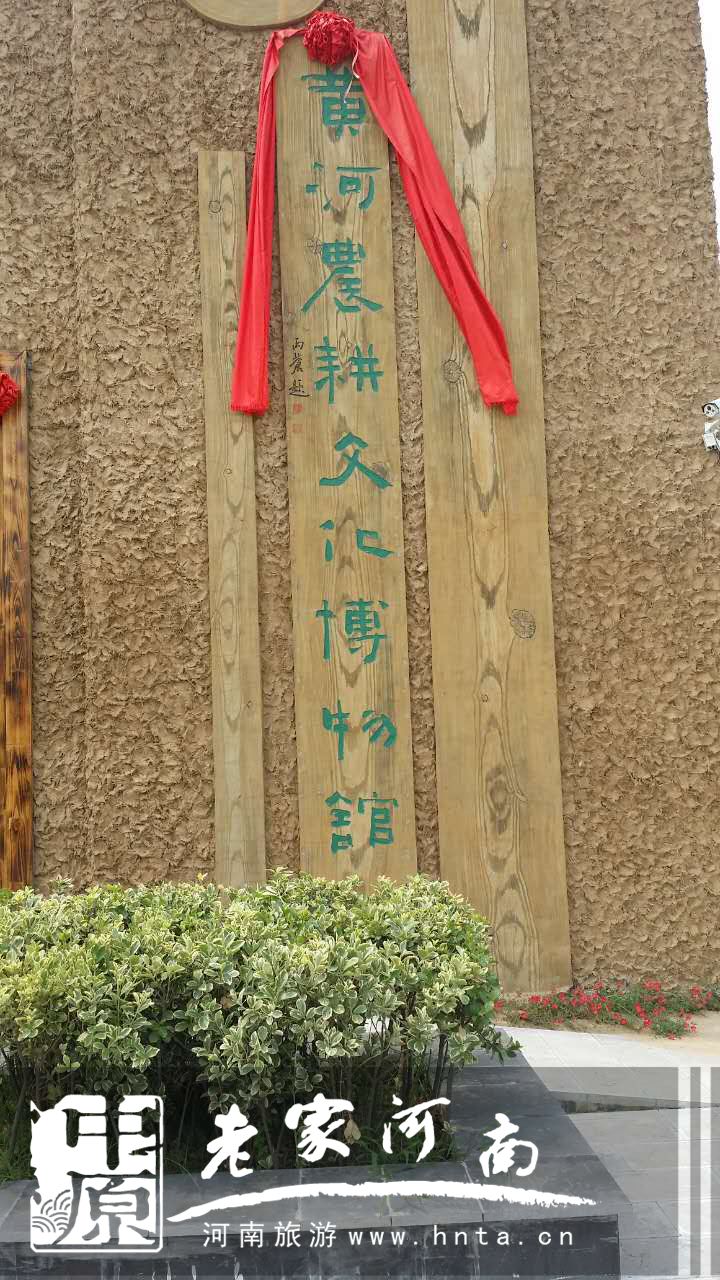 黄河農耕文化博物館
中原
老家河南
河南旅游 www.hnta.cn